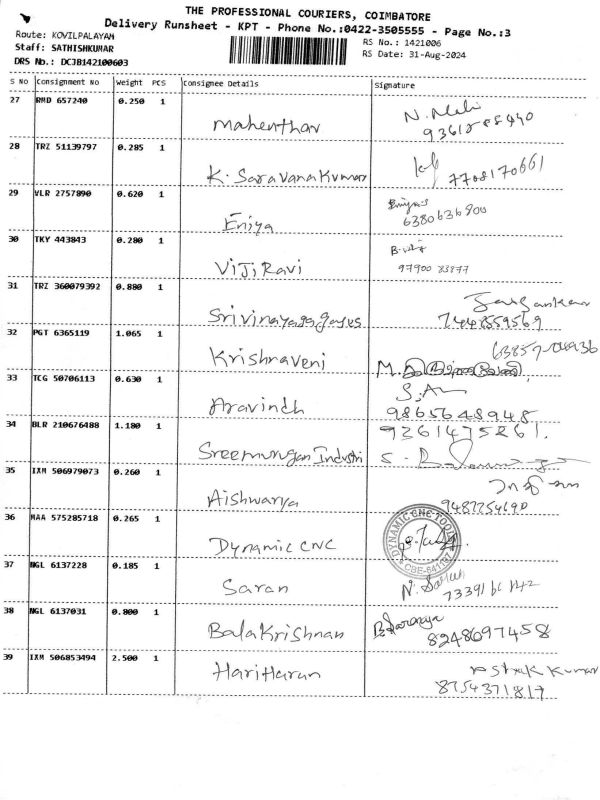 THE PROFESSIONAL COURIERS, COIMBATORE
Delivery Runsheet - KPT - Phone No.:0422-3505555 - Page No.:3
Route: KOVILPALAYAM
RS No.: 1421006
Staff: SATHISHKUMAR
RS Date: 31-Aug-2024
DRS No.: DCJB142100603
S No Consignment No Weight PCS Consignee Details Signature
27 RMD 657240 0.250 1
Mahenthar
28 TRZ 51139797 0.285 1
K. SaravanaKumar
7708170661
29 VLR 2757890 0.620 1
Eniya
6380636900
30 TKY 443843 0.280 1
VijiRavi
97900 83877
31 TRZ 360079392 0.880 1
7448559569
32 PGT 6365119 1.065 1
Krishnaveni
33 TCG 50706113 0.630 1
Aravindh
9865648948
34 BLR 210676488 1.180 1
9361475261.
Sreemurugan Industri
35 IXM 506979073 0.260 1
Aishwarya
9487254690
36 MAA 575285718 0.265 1
Dynamic CNC
DYNAMIC CNC TOOLS
CBE-641107
37 NGL 6137228 0.185 1
Saran
N. Saran
38 NGL 6137031 0.800 1
BalaKrishnan
B. Saranya
8248697458
39 IXM 506853494 2.500 1
HariHaran
Kumar
8754371817